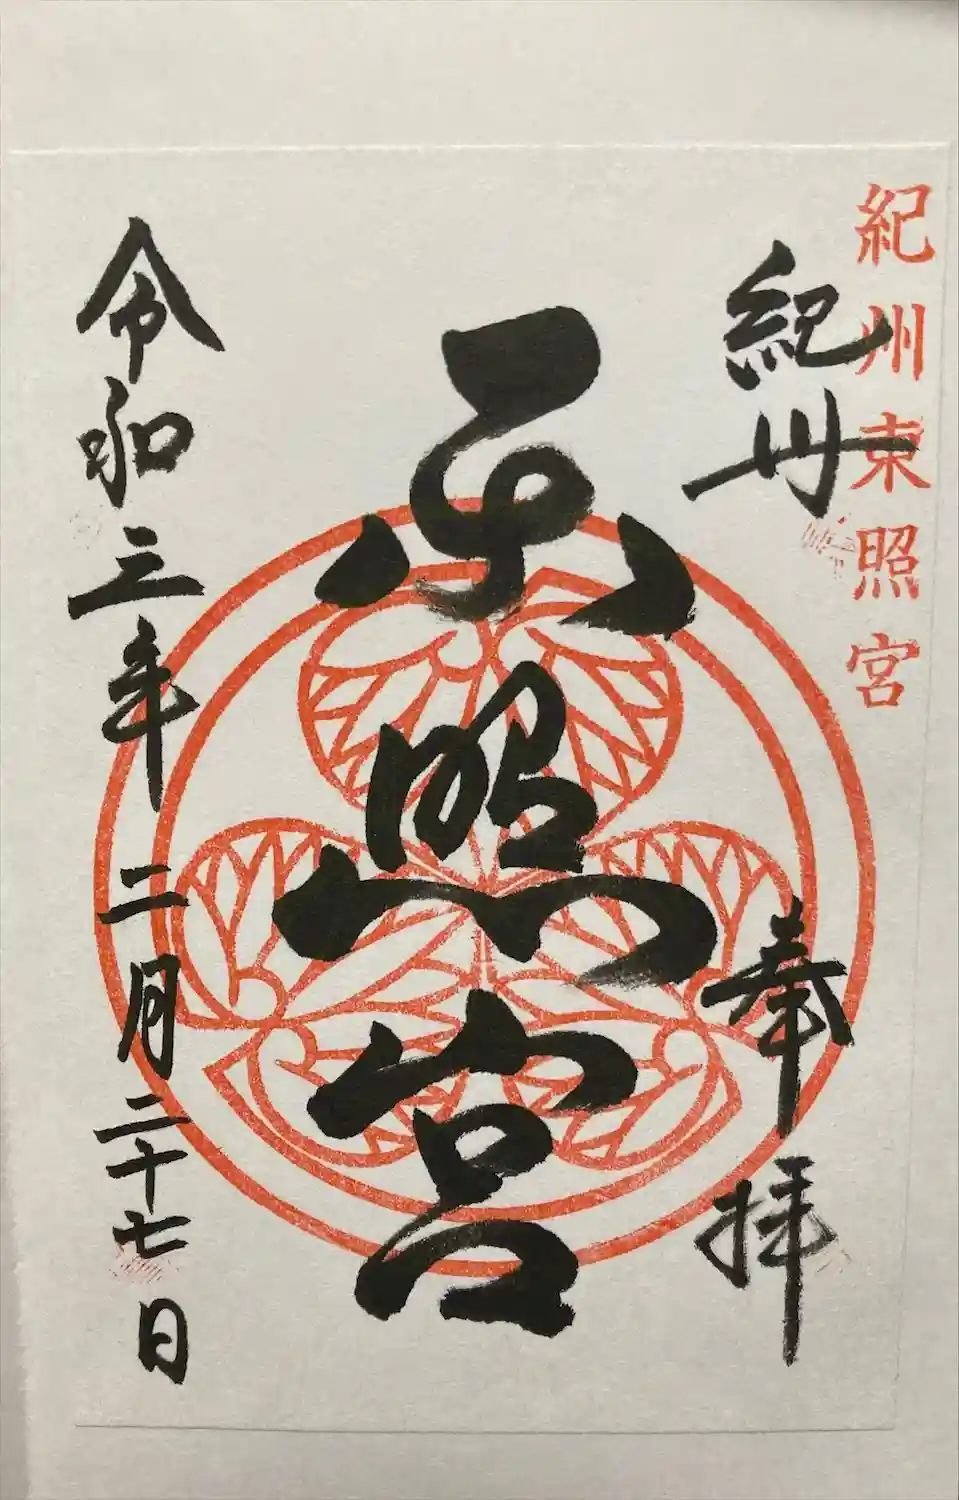 紀州東照宮
紀州
奉拝
東照宮
令和三年二月二十七日